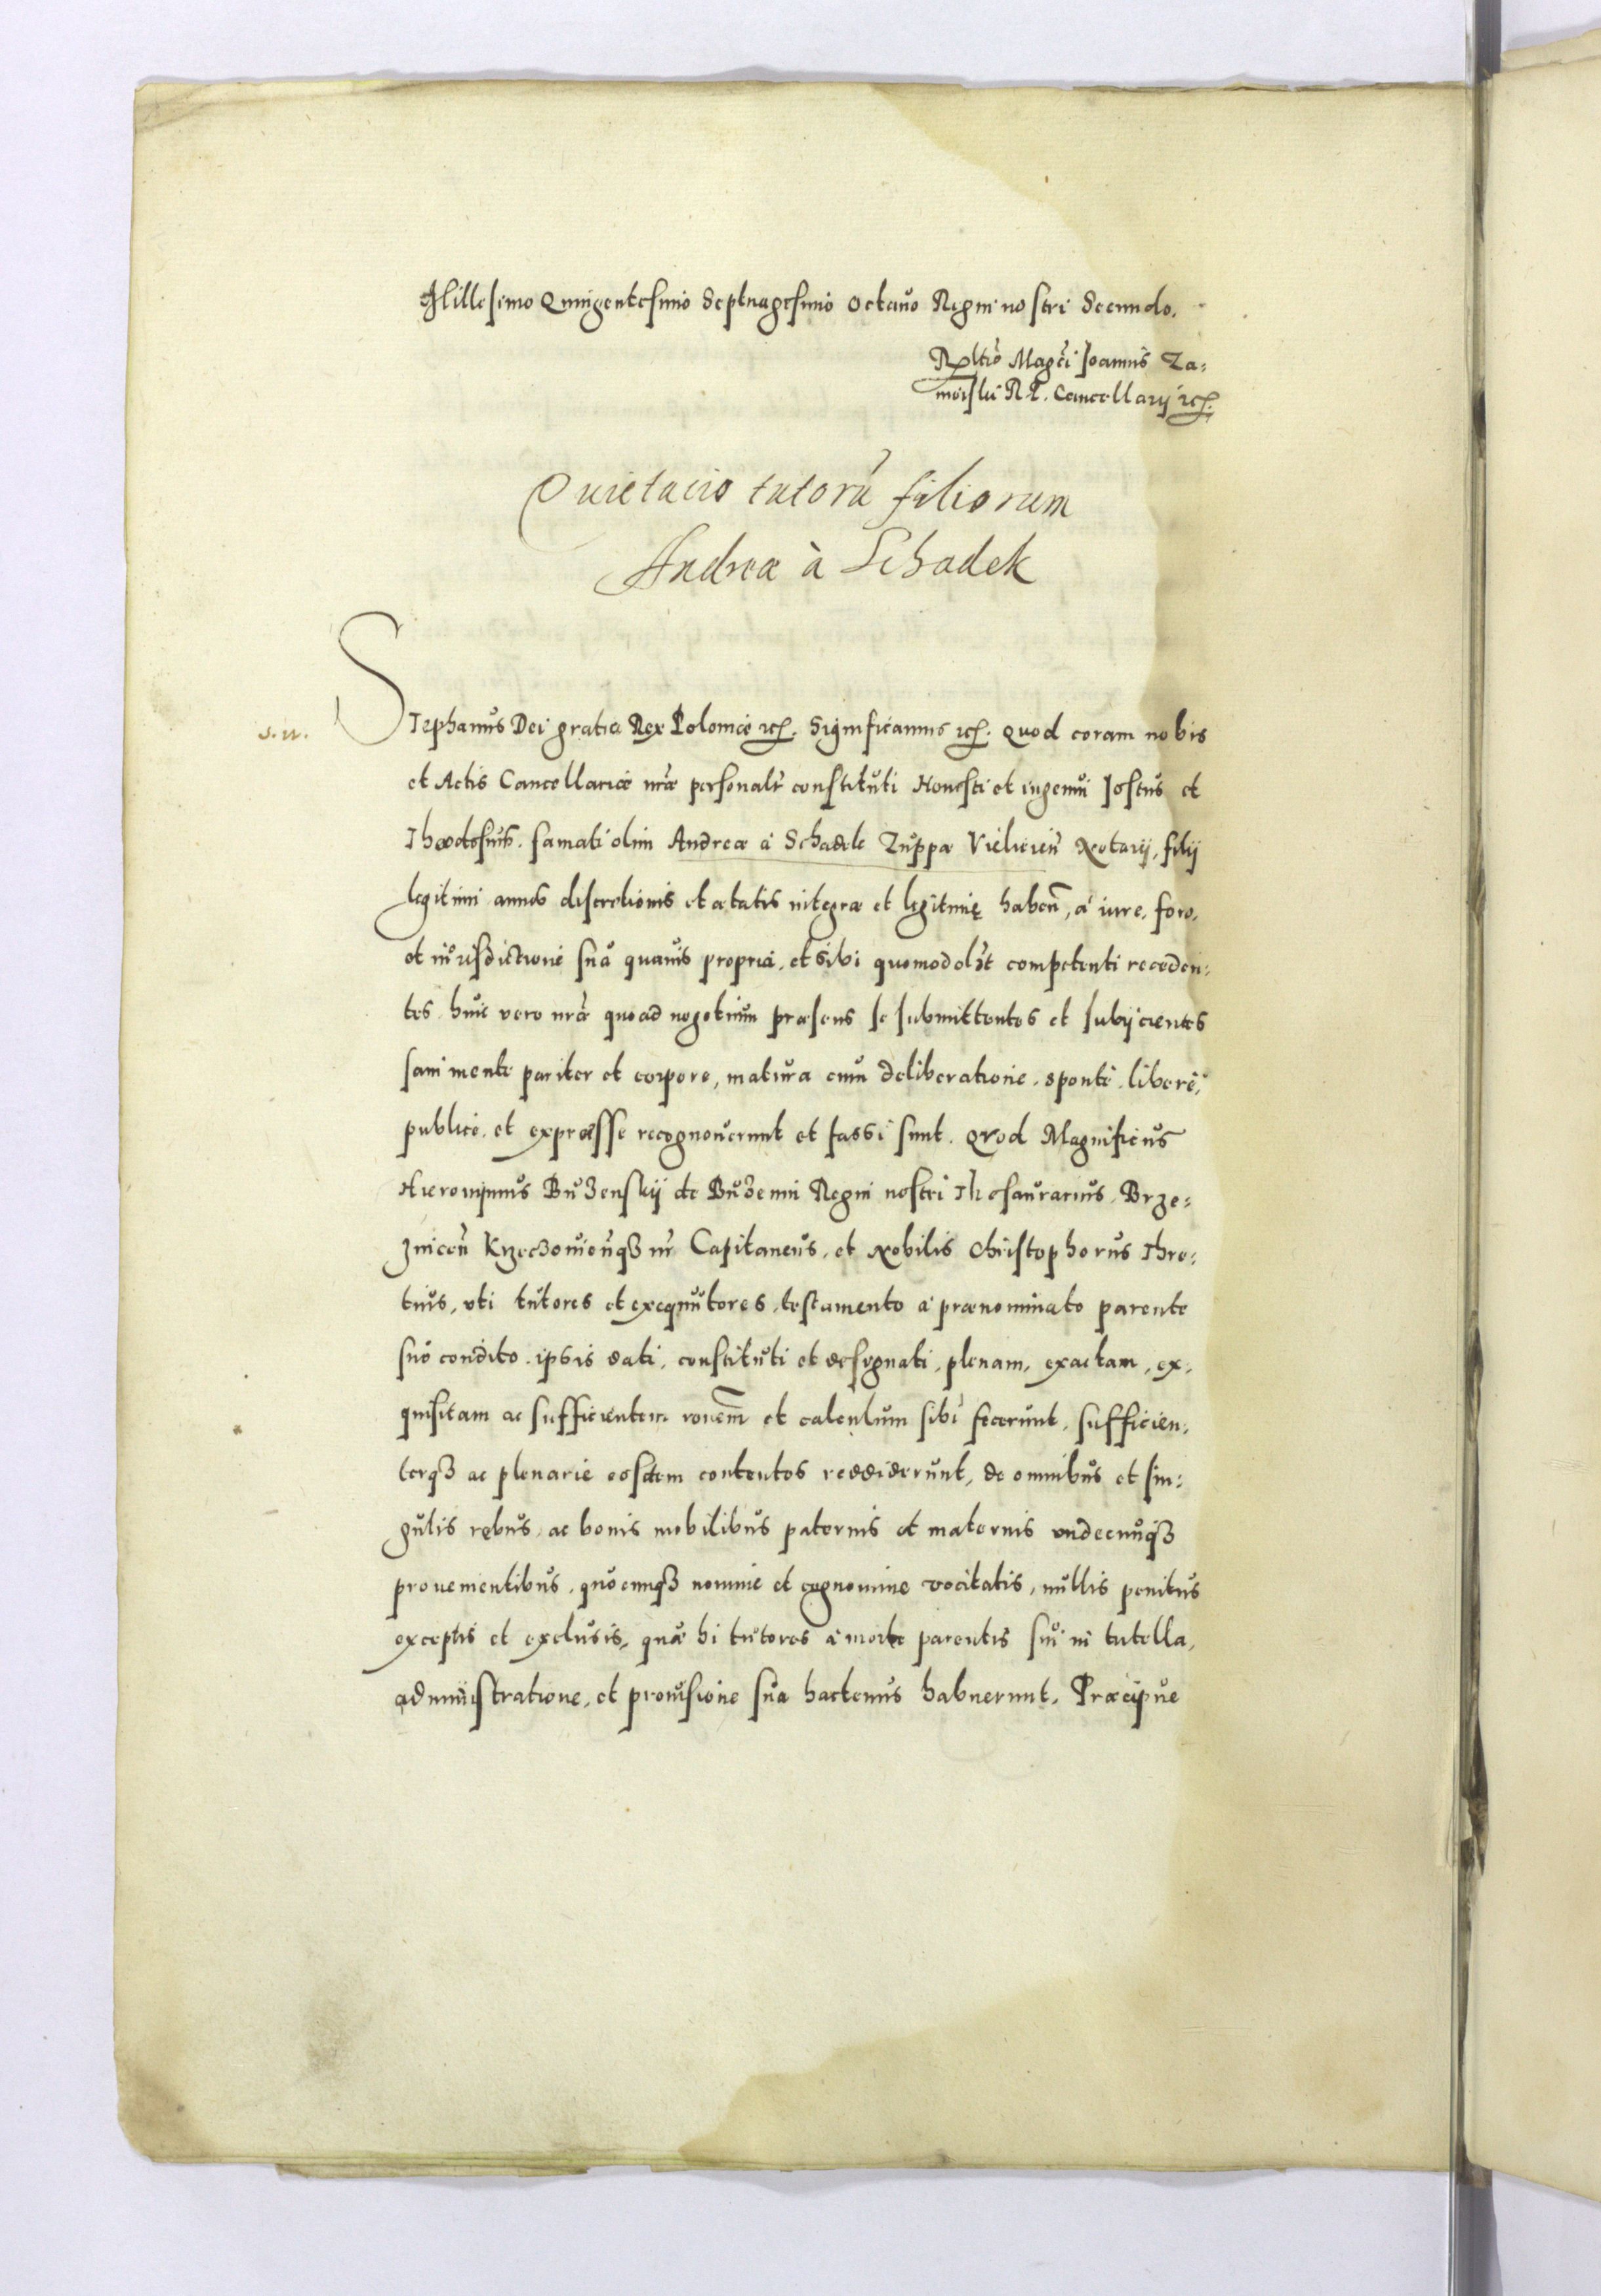 Millesimo Quingentesimo Septuagesimo Octauo Regni nostri Secundo.
Rltio Magci Joannis Za:
moiski R P. Cancellarij etc.
Quietacio tutorũ filiorum
Andreæ à Schadek
s. n.
Stephanus Dei gratia Rex Poloniæ etc. Significamus etc. Quod coram nobis
et Actis Cancellariæ nræ personalr constituti Honesti et ingenui Jostus et
Theodosius. famati olim Andreæ à Schadek Zuppæ Vielicieñ Notarij, filij
legitimi annos discretionis et ætatis integræ et legitimę habeñ, à iure, foro,
et iurisdictione sua quauis propria, et sibi quomodolꝫt competenti receden:
tes, huic vero nræ quoad negotium præsens se submittentes et subijcientes
sani mente pariter et corpore, matura cum deliberatione, sponte, libere,
publice, et expresse recognouerunt et fassi sunt. Quod Magnificus
Hieronimus Buzenskij de Buzenin Regni nostri Thesaurarius, Brze:
zniceñ Krzeczouieñqꝫ nr Capitaneus, et Nobilis Christophorus Thre:
tius, vti tutores et exequutores, testamento à prænominato parente
suo condito, ipsis dati, constituti et designati, plenam, exactam, ex:
quisitam ac sufficientem roñem et calculum sibi fecerunt, sufficien:
terqꝫ ac plenarie eosdem contentos reddiderunt, de omnibus et sin:
gulis rebus, ac bonis mobilibus paternis et maternis undecunqꝫ
prouenientibus, quocunqꝫ nomine et cognomine vocitatis, nullis penitus
exceptis et exclusis, quæ hi tutores à morte parentis sui in tutella,
administratione, et prouisione sua hactenus habuerunt, Præcipue